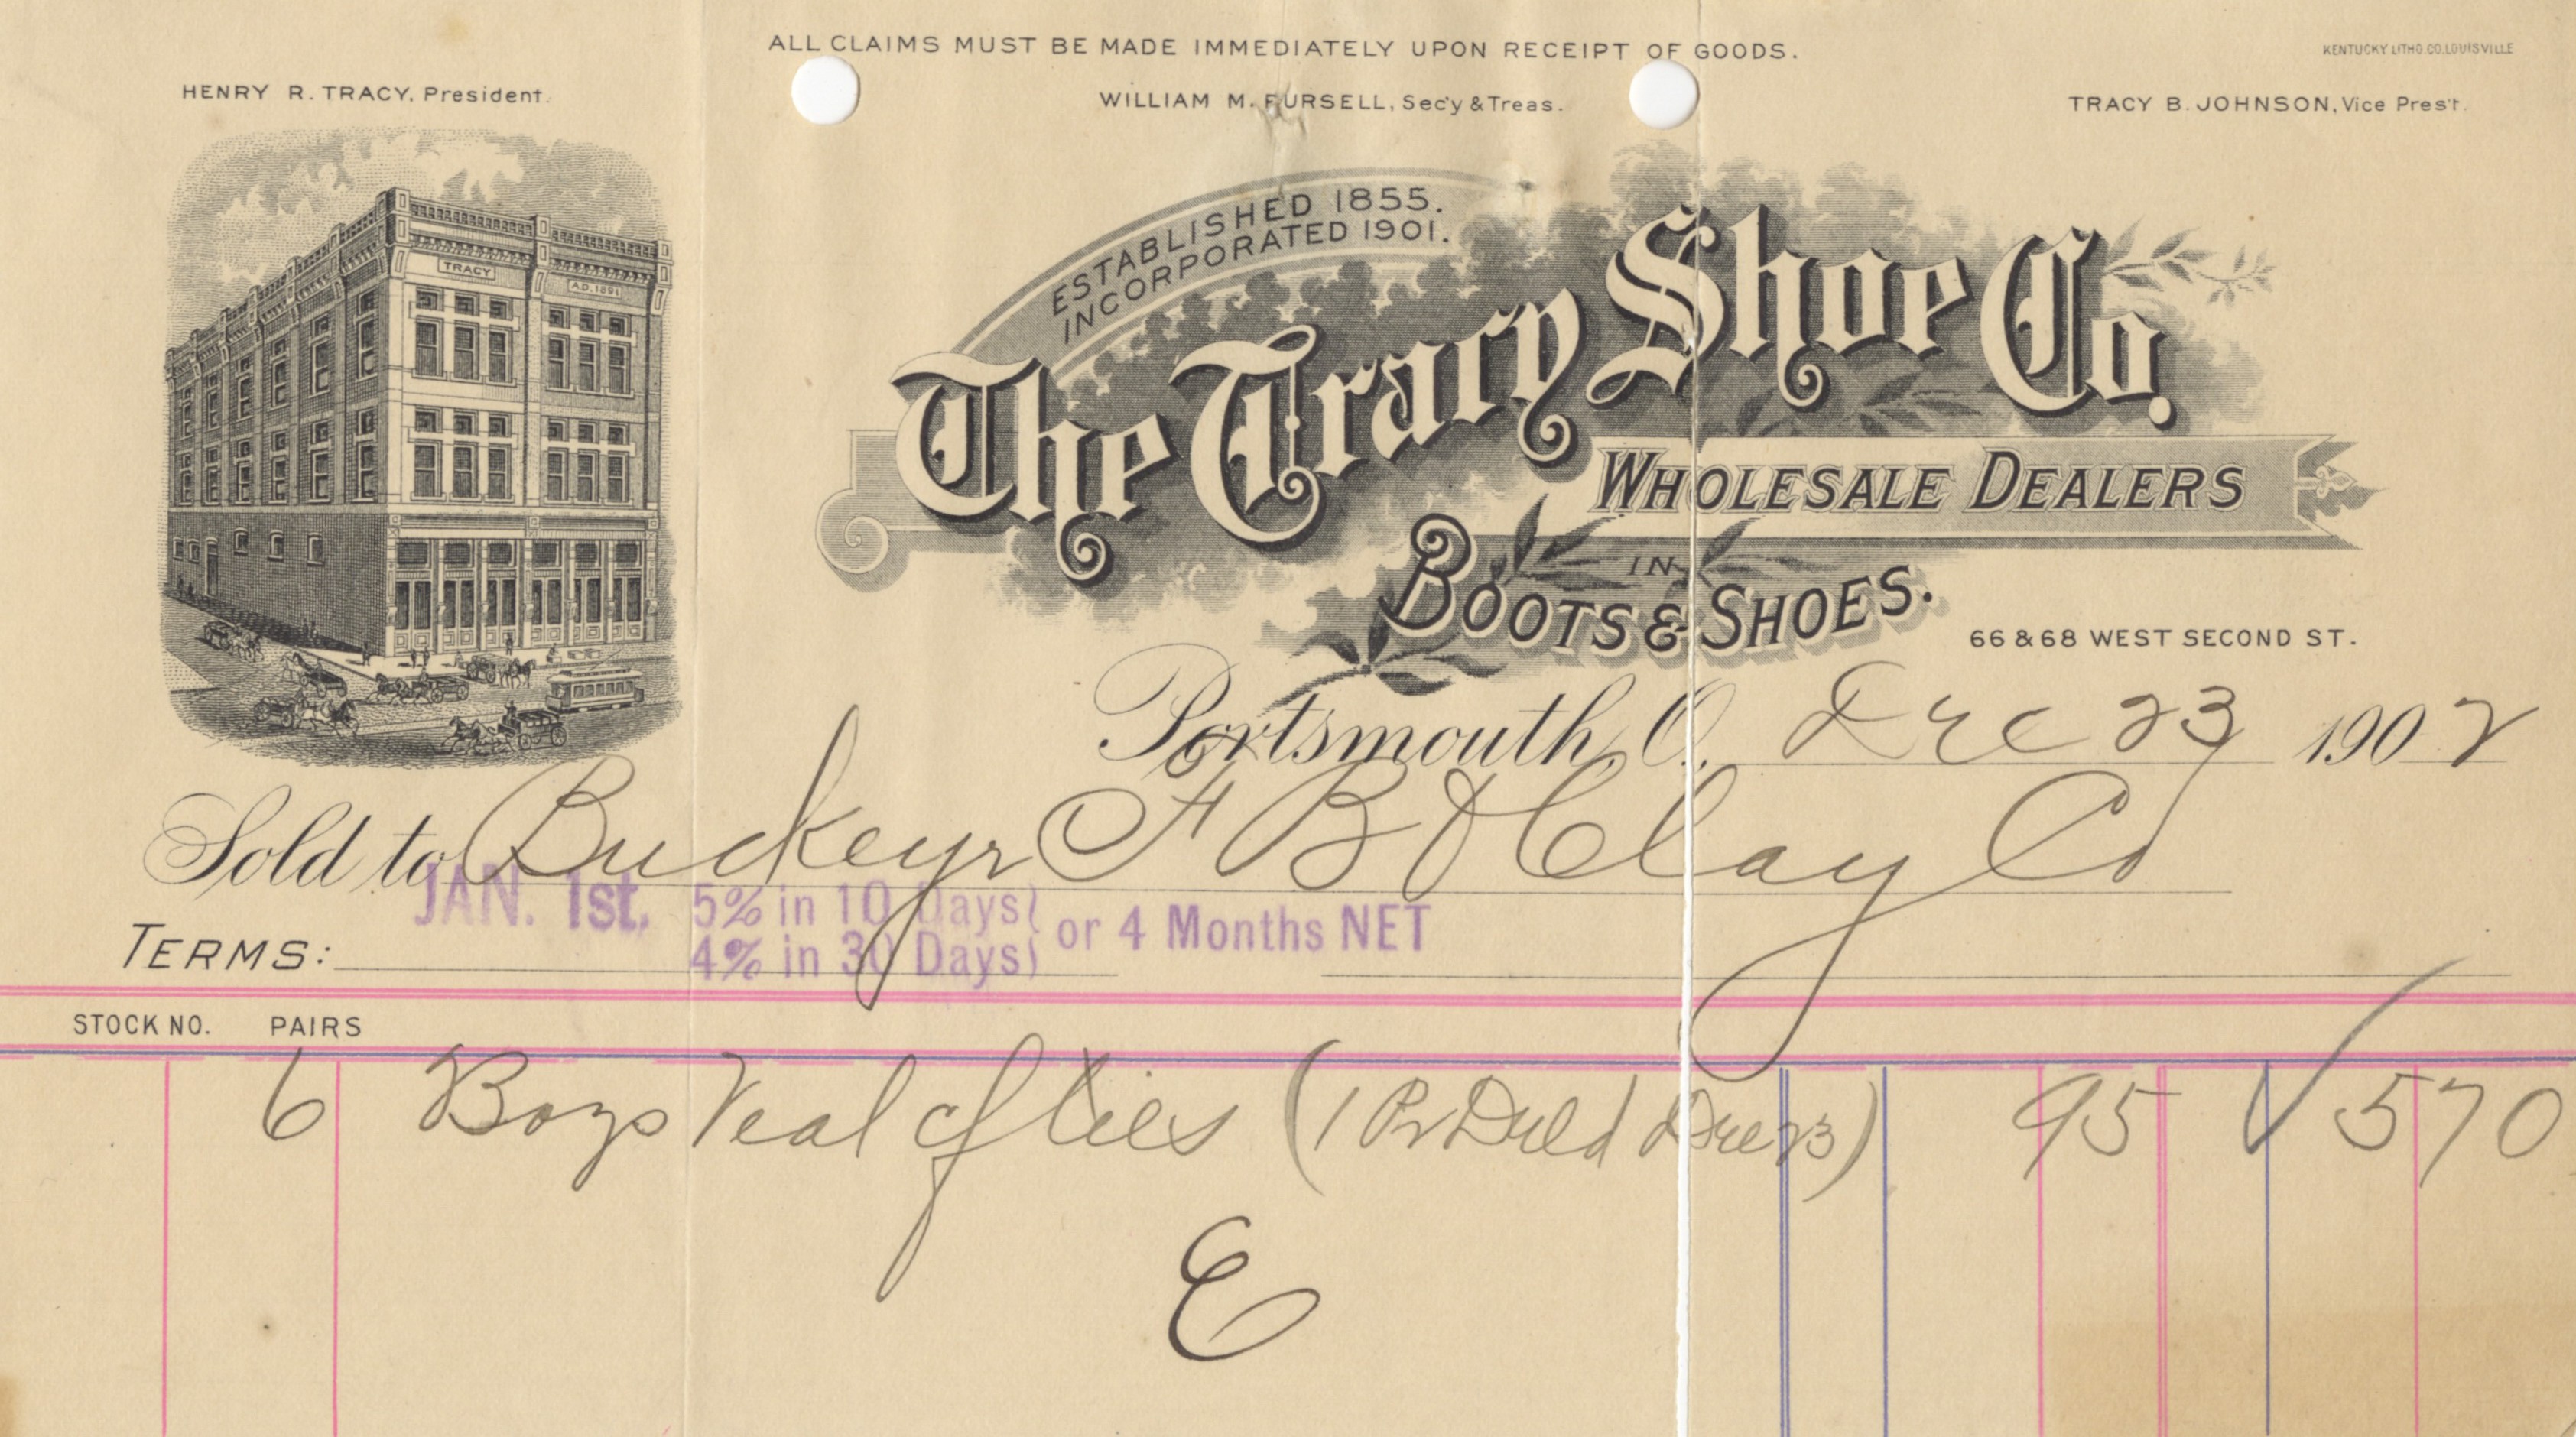 ALL CLAIMS MUST BE MADE IMMEDIATELY UPON RECEIPT OF GOODS.
KENTUCKY LITHO. CO. LOUISVILLE
HENRY R. TRACY, President.
WILLIAM M. PURSELL, Sec'y & Treas.
TRACY B. JOHNSON, Vice Pres't.
TRACY
A.D. 1891
ESTABLISHED 1855.
INCORPORATED 1901.
The Tracy Shoe Co.
WHOLESALE DEALERS
IN
BOOTS & SHOES.
66 & 68 WEST SECOND ST.
Portsmouth, O. Dec 23 1902
Sold to Buckeye F B & Clay Co
JAN. 1st. 5% in 10 Days
4% in 30 Days
or 4 Months NET
TERMS:
STOCK NO. PAIRS
6 Boys Veal Ties (1 Pr Dec 23) 95 570
E